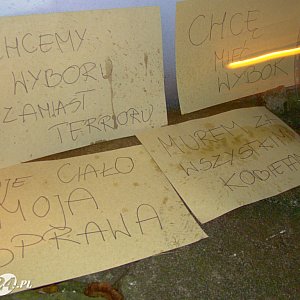 CHCEMY
WYBORU
ZAMIAST
TERRORU
CHCĘ
MIEĆ
WYBÓR
CIAŁO
MOJA
SPRAWA
MUREM ZE
WSZYSTKIMI
KOBIETAMI
24.PL